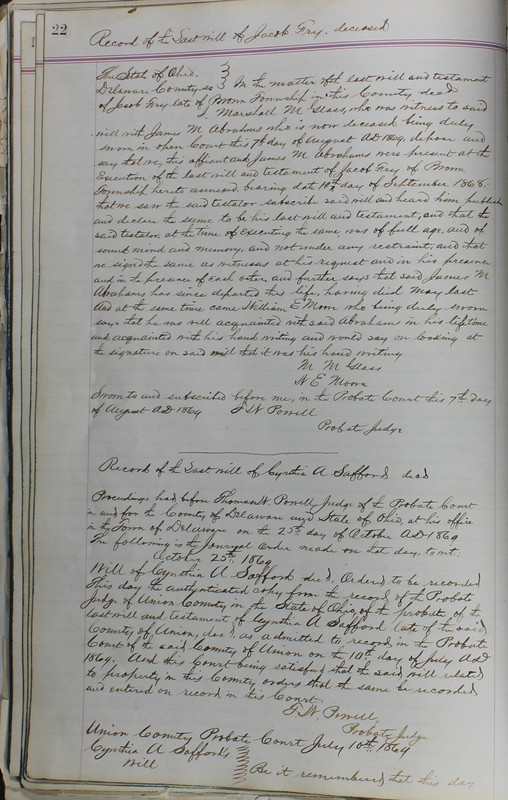 22
Record of the Last will of Jacob Fry. deceased
The State of Ohio.
Delaware County, ss In the matter of the last will and testament
of Jacob Fry late of Brown Township in this County decd
I Marshall M Glass, who was witness to said
will with James M Abrahams who is now deceased being duly
sworn in open Court this 7th day of August AD 1869, depose and
say that we, this affiant and James M Abrahams were present at the
Execution of the last will and testament of Jacob Fry of Brown
Township hereto annexed bearing dat 10th day of September 1868.
that we saw the said testator subscribe said will and heard him publish
and declare the same to be his last will and testament, and that the
said testator, at the time of Executing the same, was of full age, and of
sound mind and memory, and not under any restraint, and that
we signed the same as witnesses at his request and in his presence
and in the presence of each other, and further says that said James M
Abrahams has since departed this life, having died May last
And at the same time came William E Moore who being duly sworn
says that he was well acquainted with said Abrahams in his lifetime
and acquainted with his hand writing and would say on looking at
the signature on said will that it was his hand writing
M M Glass
W E Moore
Sworn to and subscribed before me, in the Probate Court this 7th Day
of August AD 1869 T W Powell
Probate Judge
Record of the Last will of Cynthia A Safford decd
Proceedings had before Thomas W. Powell Judge of the Probate Court
in and for the County of Delaware and State of Ohio, at his office
in the Town of Delaware on the 25th day of October AD 1869
The following is the Journal Order made on that day, to wit.
October 25th 1869
Will of Cynthia A. Safford decd. Ordered to be recorded
This day the authenticated copy from the record of the Probate
Judge of Union County in the State of Ohio of the probate of the
last will and testament of Cynthia A Safford late of the said
County of Union, decd, as admitted to record in the Probate
Court of the said County of Union on the 10th day of July AD
1869. And this Court being satisfied that the said will related
to property in this County orders that the same be recorded
and entered on record in this Court.
T. W. Powell,
Probate Judge
Union County Probate Court July 10th 1869
Cynthia A Safford's
Will Be it remembered that this day